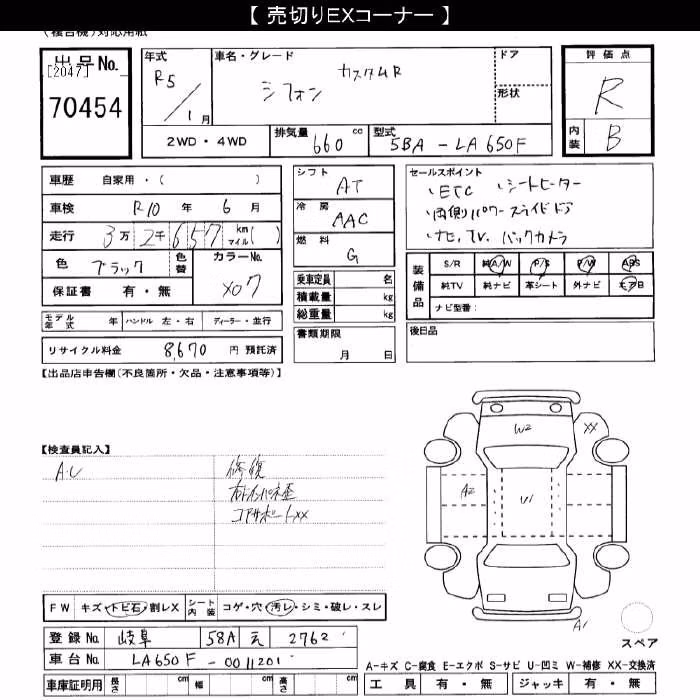 【 売切りEXコーナー 】
(複合機)対応用紙
出品No.
[2047]
70454
年式
R5/1月
車名・グレード
シフォン カスタムR
ドア
形状
評価点
R
内装
B
2WD・4WD
排気量 660 cc
型式 5BA-LA650F
車歴 自家用・( )
車検 R10 年 6 月
走行 3万2千657 km マイル( )
色 ブラック 色替
カラーNo. X07
保証書 有・無
シフト AT
冷房 AAC
燃料 G
乗車定員 名
積載量 kg
総重量 kg
セールスポイント
ヽETC ヽシートヒーター
ヽ両側パワースライドドア
ヽナビ,TV,バックカメラ
装備品
S/R 純A/W P/S P/W ABS
純TV 純ナビ 革シート 外ナビ エアB
ナビ型番:
モデル年式 年 ハンドル 左・右 ディーラー・並行
リサイクル料金 8,670 円 預託済
書類期限
月 日
後日品
【出品店申告欄(不良箇所・欠品・注意事項等)】
【検査員記入】
A.U
修復
右インパネ歪
コアサポートXX
W2
XX
A2
U1
A1
スペア
FW キズ・トビ石・割レX シート内装 コゲ・穴・汚レ・シミ・破レ・スレ
登録No. 岐阜 58A え 2762
車台No. LA650F-0011201
A-キズ C-腐食 E-エクボ S-サビ U-凹ミ W-補修 XX-交換済
車庫証明用 長さ cm 幅 cm 高さ cm
工具 有・無 ジャッキ 有・無